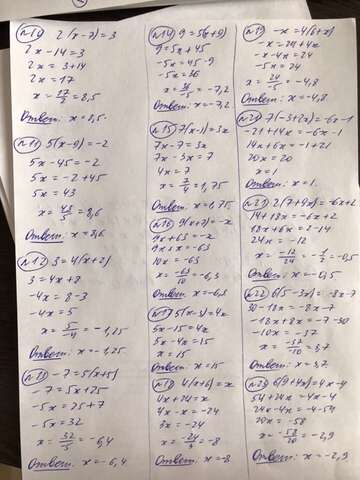 №10 2(x-7)=3
2x-14=3
2x=3+14
2x=17
x=17/2=8,5
Ответ: x=8,5.
№11 5(x-9)=-2
5x-45=-2
5x=-2+45
5x=43
x=43/5=8,6
Ответ: x=8,6
№12 3=4(x+2)
3=4x+8
-4x=8-3
-4x=5
x=5/-4=-1,25
Ответ: x=-1,25
№13 -7=5(x+5)
-7=5x+25
-5x=25+7
-5x=32
x=32/5=-6,4
Ответ: x=-6,4
№14 9=5(x+9)
9=5x+45
-5x=45-9
-5x=36
x=36/-5=-7,2
Ответ: x=-7,2
№15 7(x-1)=3x
7x-7=3x
7x-3x=7
4x=7
x=7/4=1,75
Ответ: x=1,75
№16 9(x+7)=-x
9x+63=-x
9x+x=-63
10x=-63
x=-63/10=-6,3
Ответ: x=-6,3
№17 5(x-3)=4x
5x-15=4x
5x-4x=15
x=15
Ответ: x=15
№18 4(x+6)=x
4x+24=x
4x-x=-24
3x=-24
x=-24/3=-8
Ответ: x=-8
№19 -x=4(6+x)
-x=24+4x
-x-4x=24
-5x=24
x=24/-5=-4,8
Ответ: x=-4,8.
7(-3+2x)=-6x-1
-21+14x=-6x-1
14x+6x=-1+21
20x=20
x=1
Ответ: x=1.
№21 2(7+9x)=-6x+2
14+18x=-6x+2
18x+6x=2-14
24x=-12
x=-12/24=-1/2=-0,5
Ответ: x=-0,5
№22 6(5-3x)=-8x-7
30-18x=-8x-7
-18x+8x=-7-30
-10x=-37
x=-37/10=3,7
Ответ: x=3,7.
№23 6(9+4x)=4x-4
54+24x=4x-4
24x-4x=-4-54
20x=-58
x=-58/20=-2,9
Ответ: x=-2,9